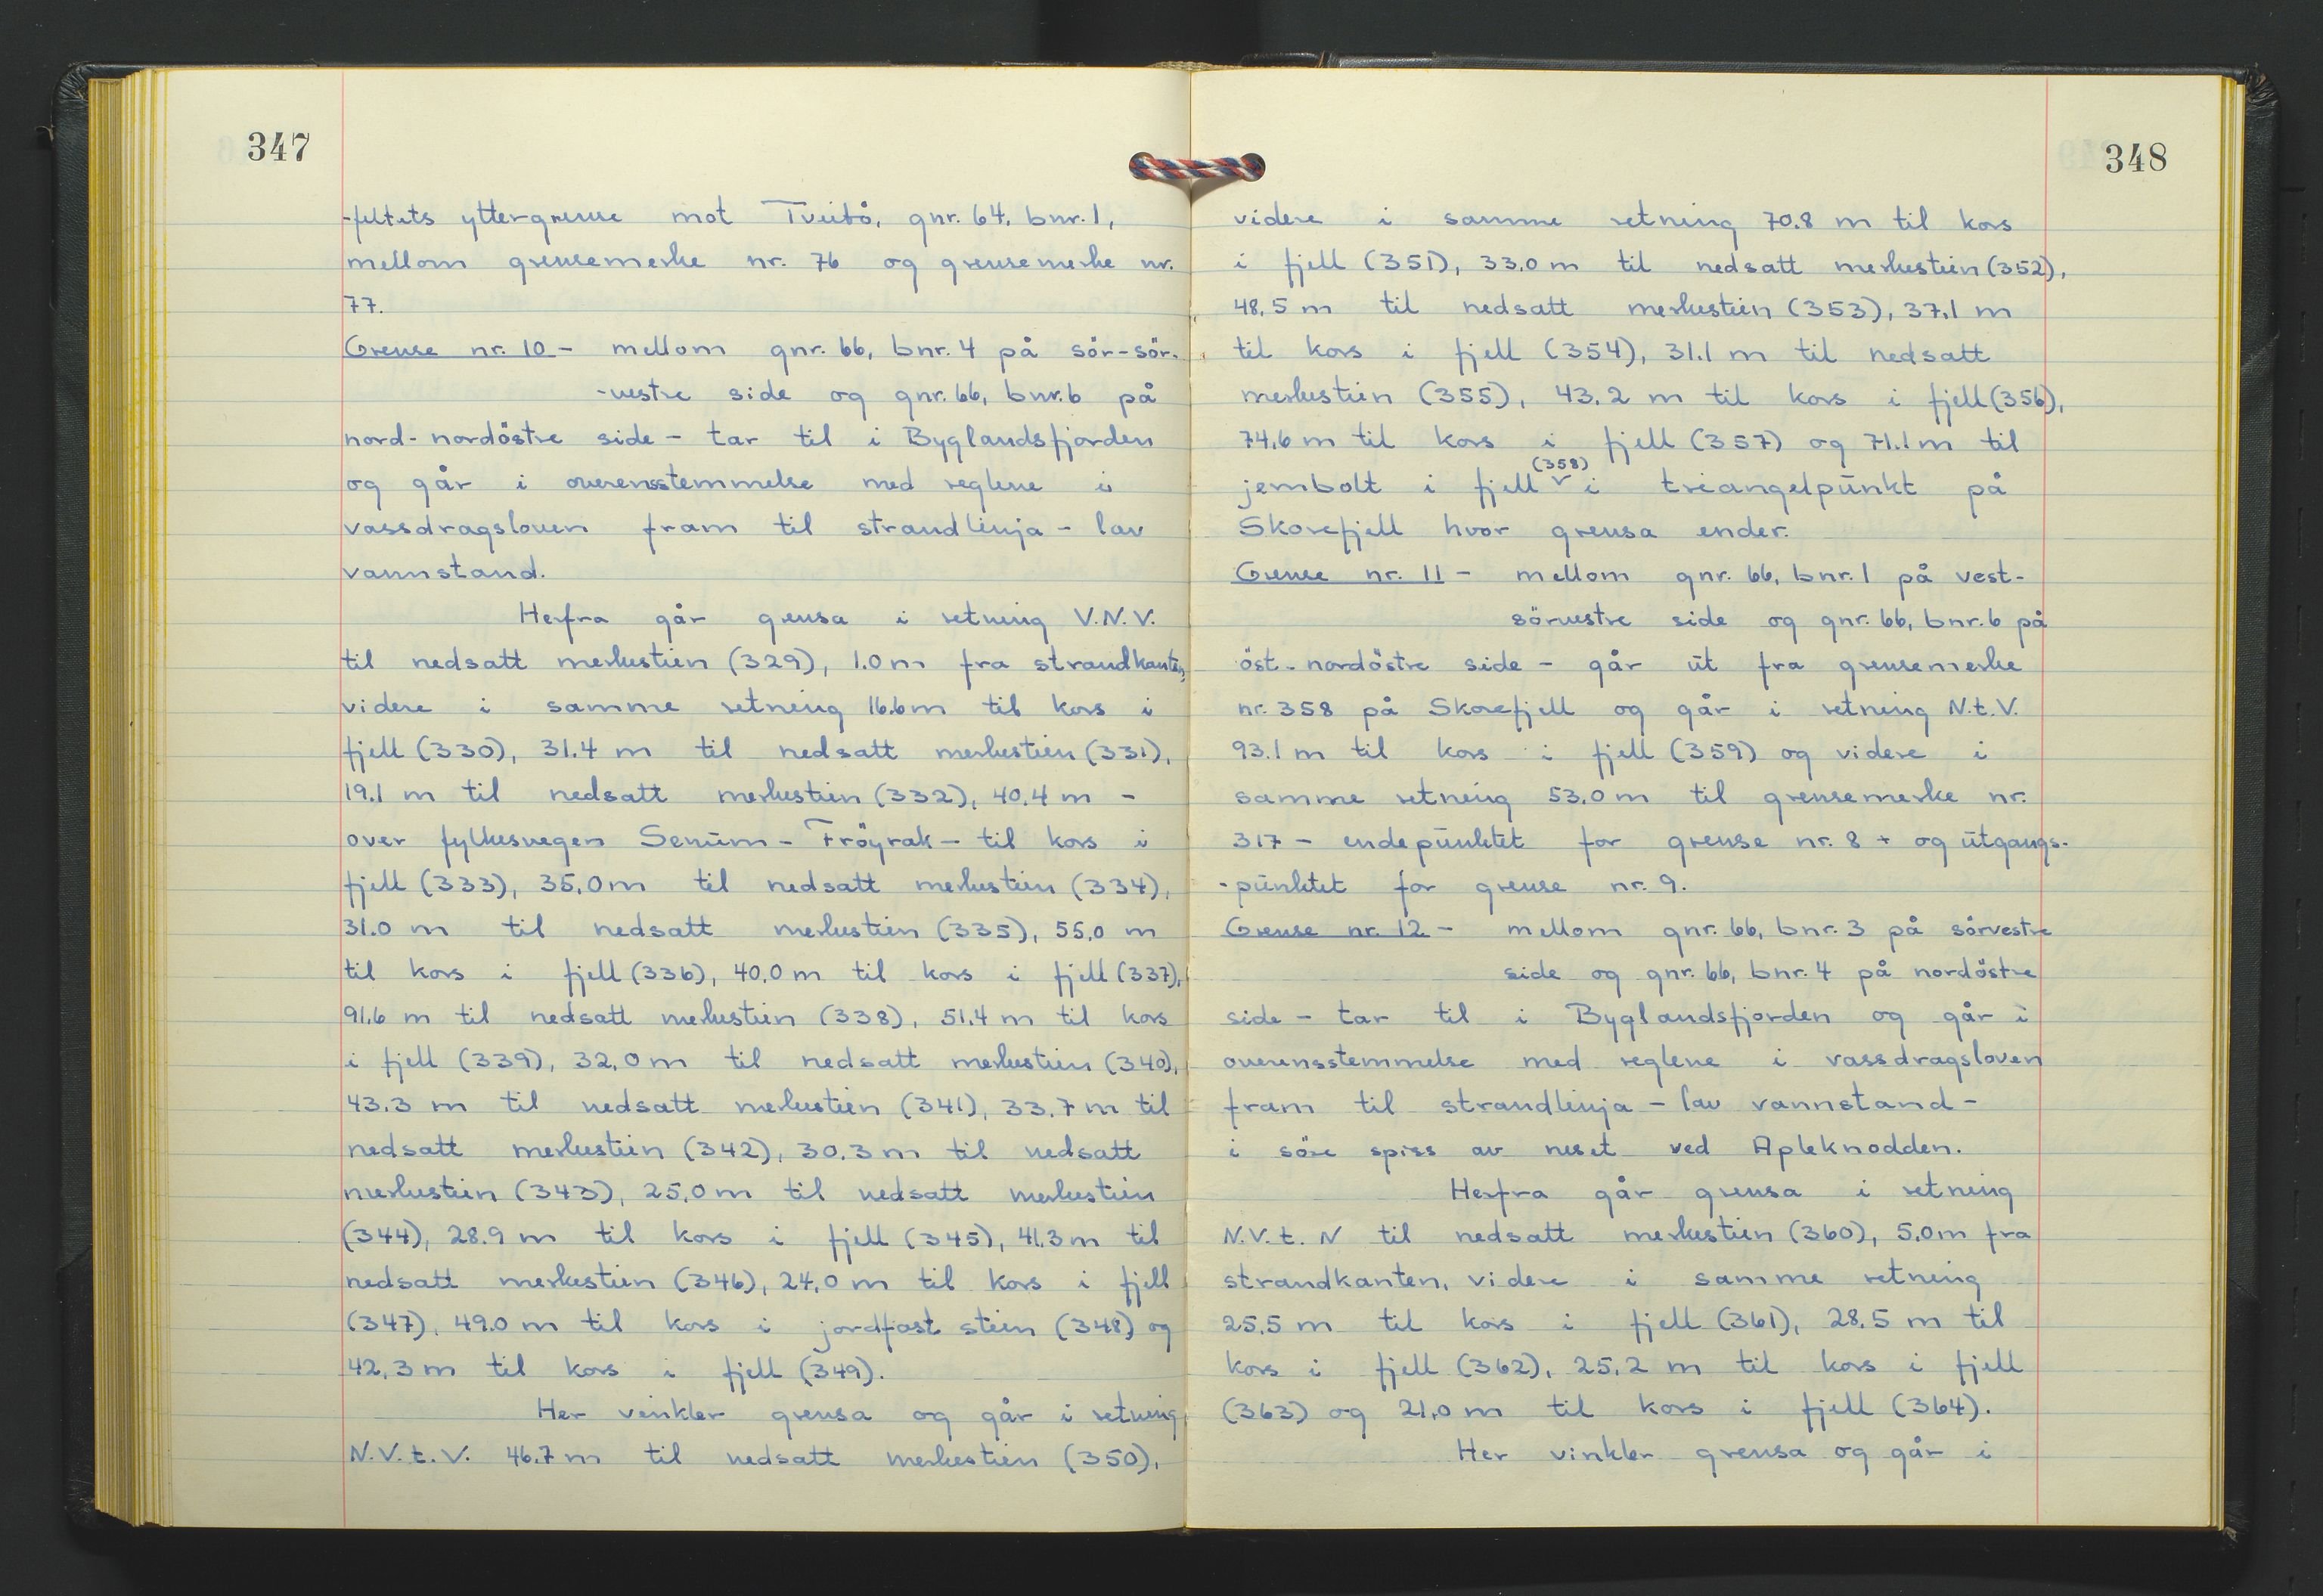 347
-feltets yttergrense mot Tveitå, gnr. 64, bnr. 1,
mellom grensemerke nr. 76 og grensemerke nr.
77.
Grense nr. 10 - mellom gnr. 66, bnr. 4 på sör-sör-
-vestre side og gnr. 66, bnr. 6 på
nord-nordöstre side - tar til i Byglandsfjorden
og går i overensstemmelse med reglene i
vassdragsloven fram til strandlinja - lav
vannstand.
Herfra går grensa i retning V.N.V.
til nedsatt merkestein (329), 1.0 m fra strandkanten,
videre i samme retning 16.6 m til kors i
fjell (330), 31.4 m til nedsatt merkestein (331),
19.1 m til nedsatt merkestein (332), 40.4 m -
over fylkesvegen Senum - Fröyrak - til kors i
fjell (333), 35,0 m til nedsatt merkestein (334),
31.0 m til nedsatt merkestein (335), 55,0 m
til kors i fjell (336), 40,0 m til kors i fjell (337),
91,6 m til nedsatt merkestein (338), 51.4 m til kors
i fjell (339), 32,0 m til nedsatt merkestein (340),
43.3 m til nedsatt merkestein (341), 33.7 m til
nedsatt merkestein (342), 30.3 m til nedsatt
merkestein (343), 25,0 m til nedsatt merkestein
(344), 28.9 m til kors i fjell (345), 41,3 m til
nedsatt merkestein (346), 24,0 m til kors i fjell
(347), 49.0 m til kors i jordfast stein (348) og
42,3 m til kors i fjell (349).
Her vinkler grensa og går i retning
N.V.t.V. 46.7 m til nedsatt merkestein (350),
348
videre i samme retning 70.8 m til kors
i fjell (351), 33.0 m til nedsatt merkestein (352),
48,5 m til nedsatt merkestein (353), 37,1 m
til kors i fjell (354), 31.1 m til nedsatt
merkestein (355), 43.2 m til kors i fjell (356),
74,6 m til kors i fjell (357) og 71.1 m til
(358)
jernbolt i fjell i triangelpunkt på
Skorefjell hvor grensa ender.
Grense nr. 11 - mellom gnr. 66, bnr. 1 på vest-
sörvestre side og gnr. 66, bnr. 6 på
öst-nordöstre side - går ut fra grensemerke
nr. 358 på Skorefjell og går i retning N.t.V.
93.1 m til kors i fjell (359) og videre i
samme retning 53.0 m til grensemerke nr.
317 - endepunktet for grense nr. 8 + og utgangs-
-punktet for grense nr. 9.
Grense nr. 12 - mellom gnr. 66, bnr. 3 på sörvestre
side og gnr. 66, bnr. 4 på nordöstre
side - tar til i Byglandsfjorden og går i
overensstemmelse med reglene i vassdragsloven
fram til strandlinja - lav vannstand -
i söre spiss av neset ved Apleknodden.
Herfra går grensa i retning
N.V.t. N til nedsatt merkestein (360), 5,0 m fra
strandkanten, videre i samme retning
25,5 m til kors i fjell (361), 28,5 m til
kors i fjell (362), 25,2 m til kors i fjell
(363) og 21,0 m til kors i fjell (364).
Her vinkler grensa og går i